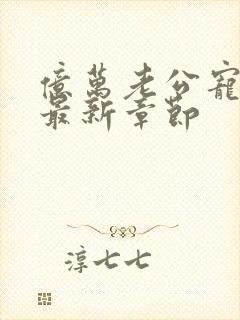 億萬老公寵
最新章節
淳七七